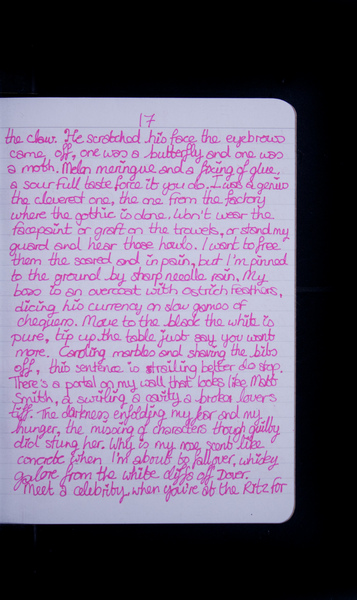 17
the claw. He scratched his face the eyebrows
came off, one was a butterfly and one was
a moth. Melon meringue and a fixing of glue,
a sour full taste force it you do. I was a genius
the cleverest one, the one from the factory
where the gothic is done. Won't wear the
facepaint or graft on the trowels, or stand my
guard and hear those howls. I want to free
them the scared and in pain, but I'm pinned
to the ground by sharp needle rain. My
boss is an overcoat with ostrich feathers,
dicing his currency on slow games of
chequers. Move to the black the white is
pure, tip up the table just say you want
more. Carding marbles and shaving the bibs
off, this sentence is strailing better do stop.
There's a portal on my wall that looks like Matt
Smith, a swirling a cavity a broken lovers
tiff. The darkness enfolding my fear and my
hunger, the missing of characters though guilty
did stung her. Why is my nose scent like
concrete when I'm about to fall over, whisky
galore from the white cliffs off Dover.
Meet a celebrity when you're at the Ritz for